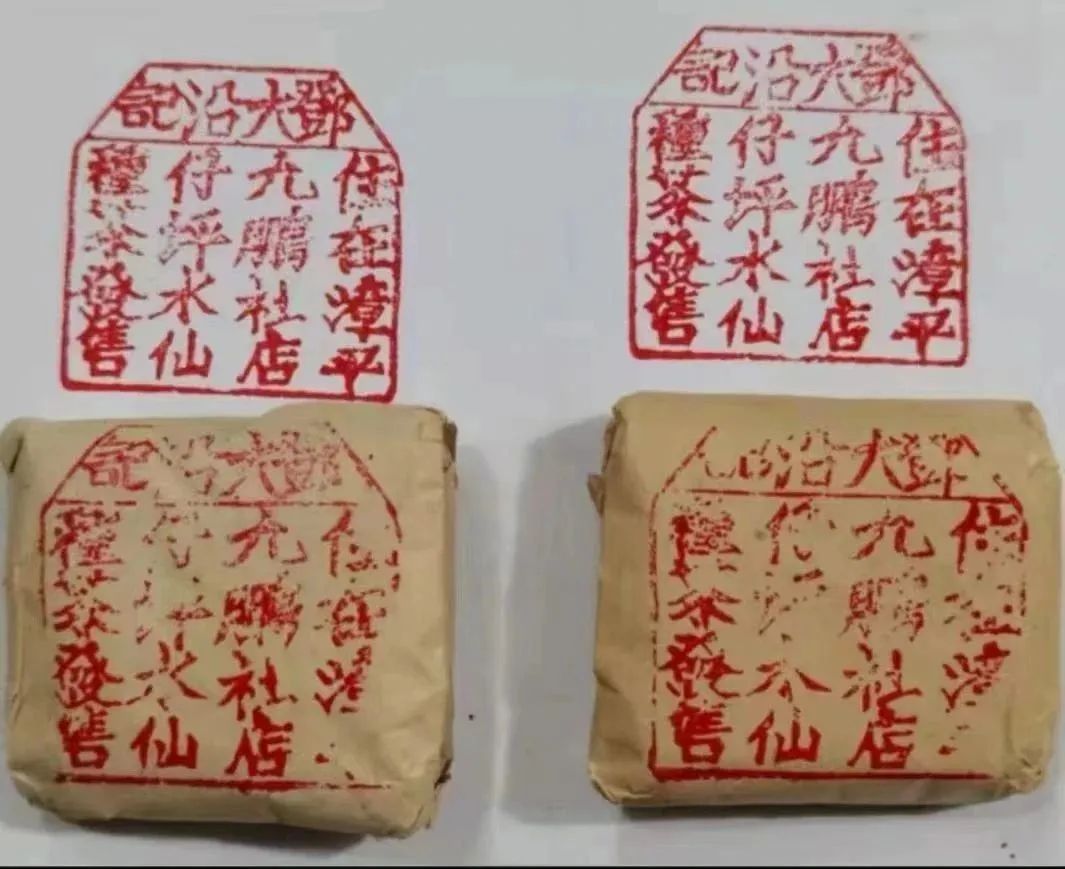 鄧大沿記
住在漳平
九鵬社店
仔坪水仙
種茶發售
鄧大沿記
住在漳平
九鵬社店
仔坪水仙
種茶發售
鄧大沿記
住在漳
九鵬社店
仔坪水仙
種茶發售
鄧大沿
住在漳
九鵬社店
仔坪水仙
種茶發售